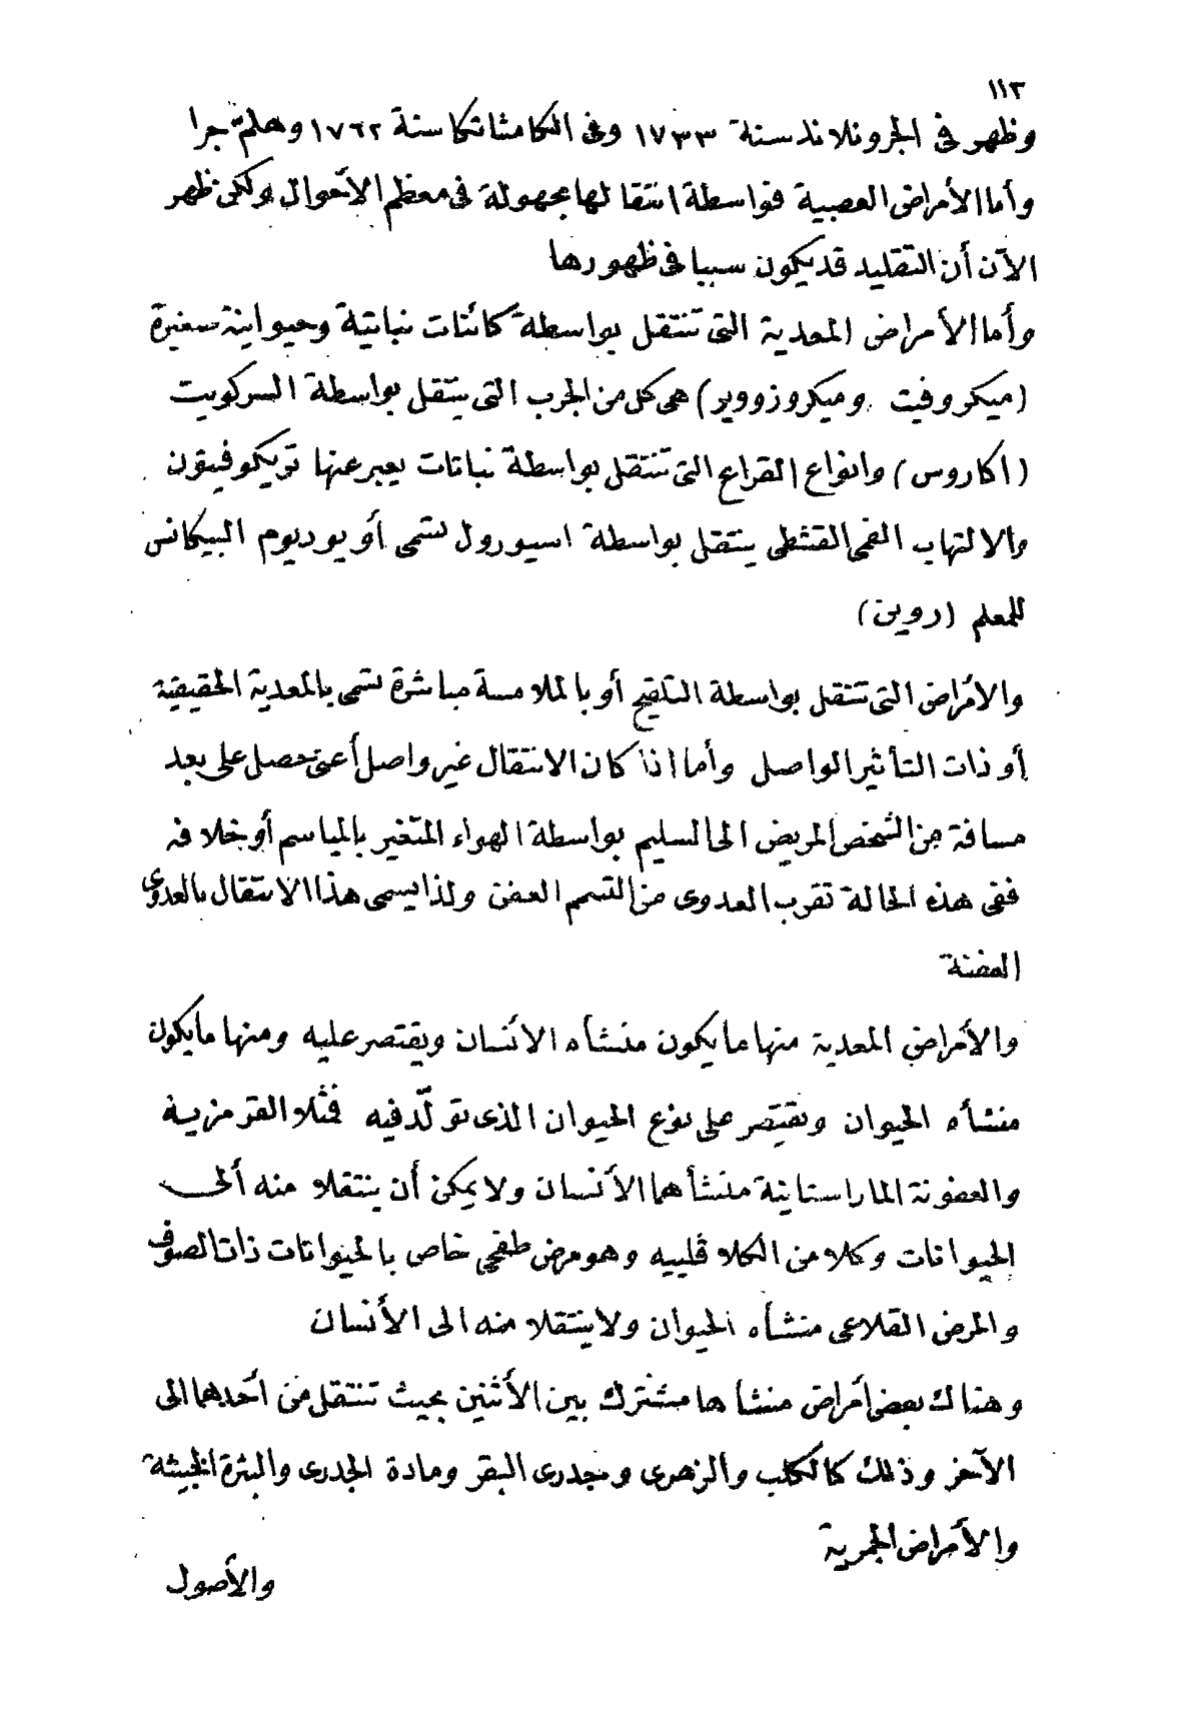 ١١٣
وظهر فى الجرونلاند سنة ١٧٣٣ وفى الكامشاتكا سنة ١٧٦٢ وهلم جرا
وأما الأمراض العصبية فواسطة انتقالها مجهولة فى معظم الأحوال ولكن ظهر
الآن أن التقليد قد يكون سببا فى ظهورها
وأما الأمراض المعدية التى تنتقل بواسطة كائنات نباتية وحيوانية صغيرة
(ميكروفيت وميكروزووير) هى كل من الجرب التى ينتقل بواسطة السركوبت
(اكاروس) وانواع القراع التى تنتقل بواسطة نباتات يعبر عنها تريكوفيتون
والالتهاب الفمى القشطى ينتقل بواسطة اسبورول تسمى أويوديوم البيكانس
للمعلم (روبن)
والأمراض التى تنتقل بواسطة التلقيح أو بالملامسة مباشرة تسمى بالمعدية الحقيقية
أو ذات التأثير الواصل وأما اذا كان الانتقال غير واصل أعنى حصل على بعد
مسافة من الشخص المريض الى السليم بواسطة الهواء المتغير بالمياسم أو خلافه
ففى هذه الحالة تقرب العدوى من التسمم العفن ولذا يسمى هذا الانتقال بالعدوى
العفنة
والأمراض المعدية منها ما يكون منشأه الانسان ويقتصر عليه ومنها ما يكون
منشأه الحيوان ويقتصر على نوع الحيوان الذى تولّد فيه فمثلا القرمزية
والعفونة المارستانية منشأهما الأنسان ولا يمكن أن ينتقلا منه ألى
الحيوانات وكلا من الكلا قلييه وهو مرض طفحى خاص بالحيوانات ذات الصوف
والمرض القلاعى منشأه الحيوان ولا ينتقلا منه الى الأنسان
وهناك بعض أمراض منشاها مشترك بين الأثنين بحيث تنتقل من أحدهما الى
الآخر وذلك كالكلب والزهرى وجدرى البقر ومادة الجدرى والبثرة الخبيثة
والأمراض الجمرية
والأصول